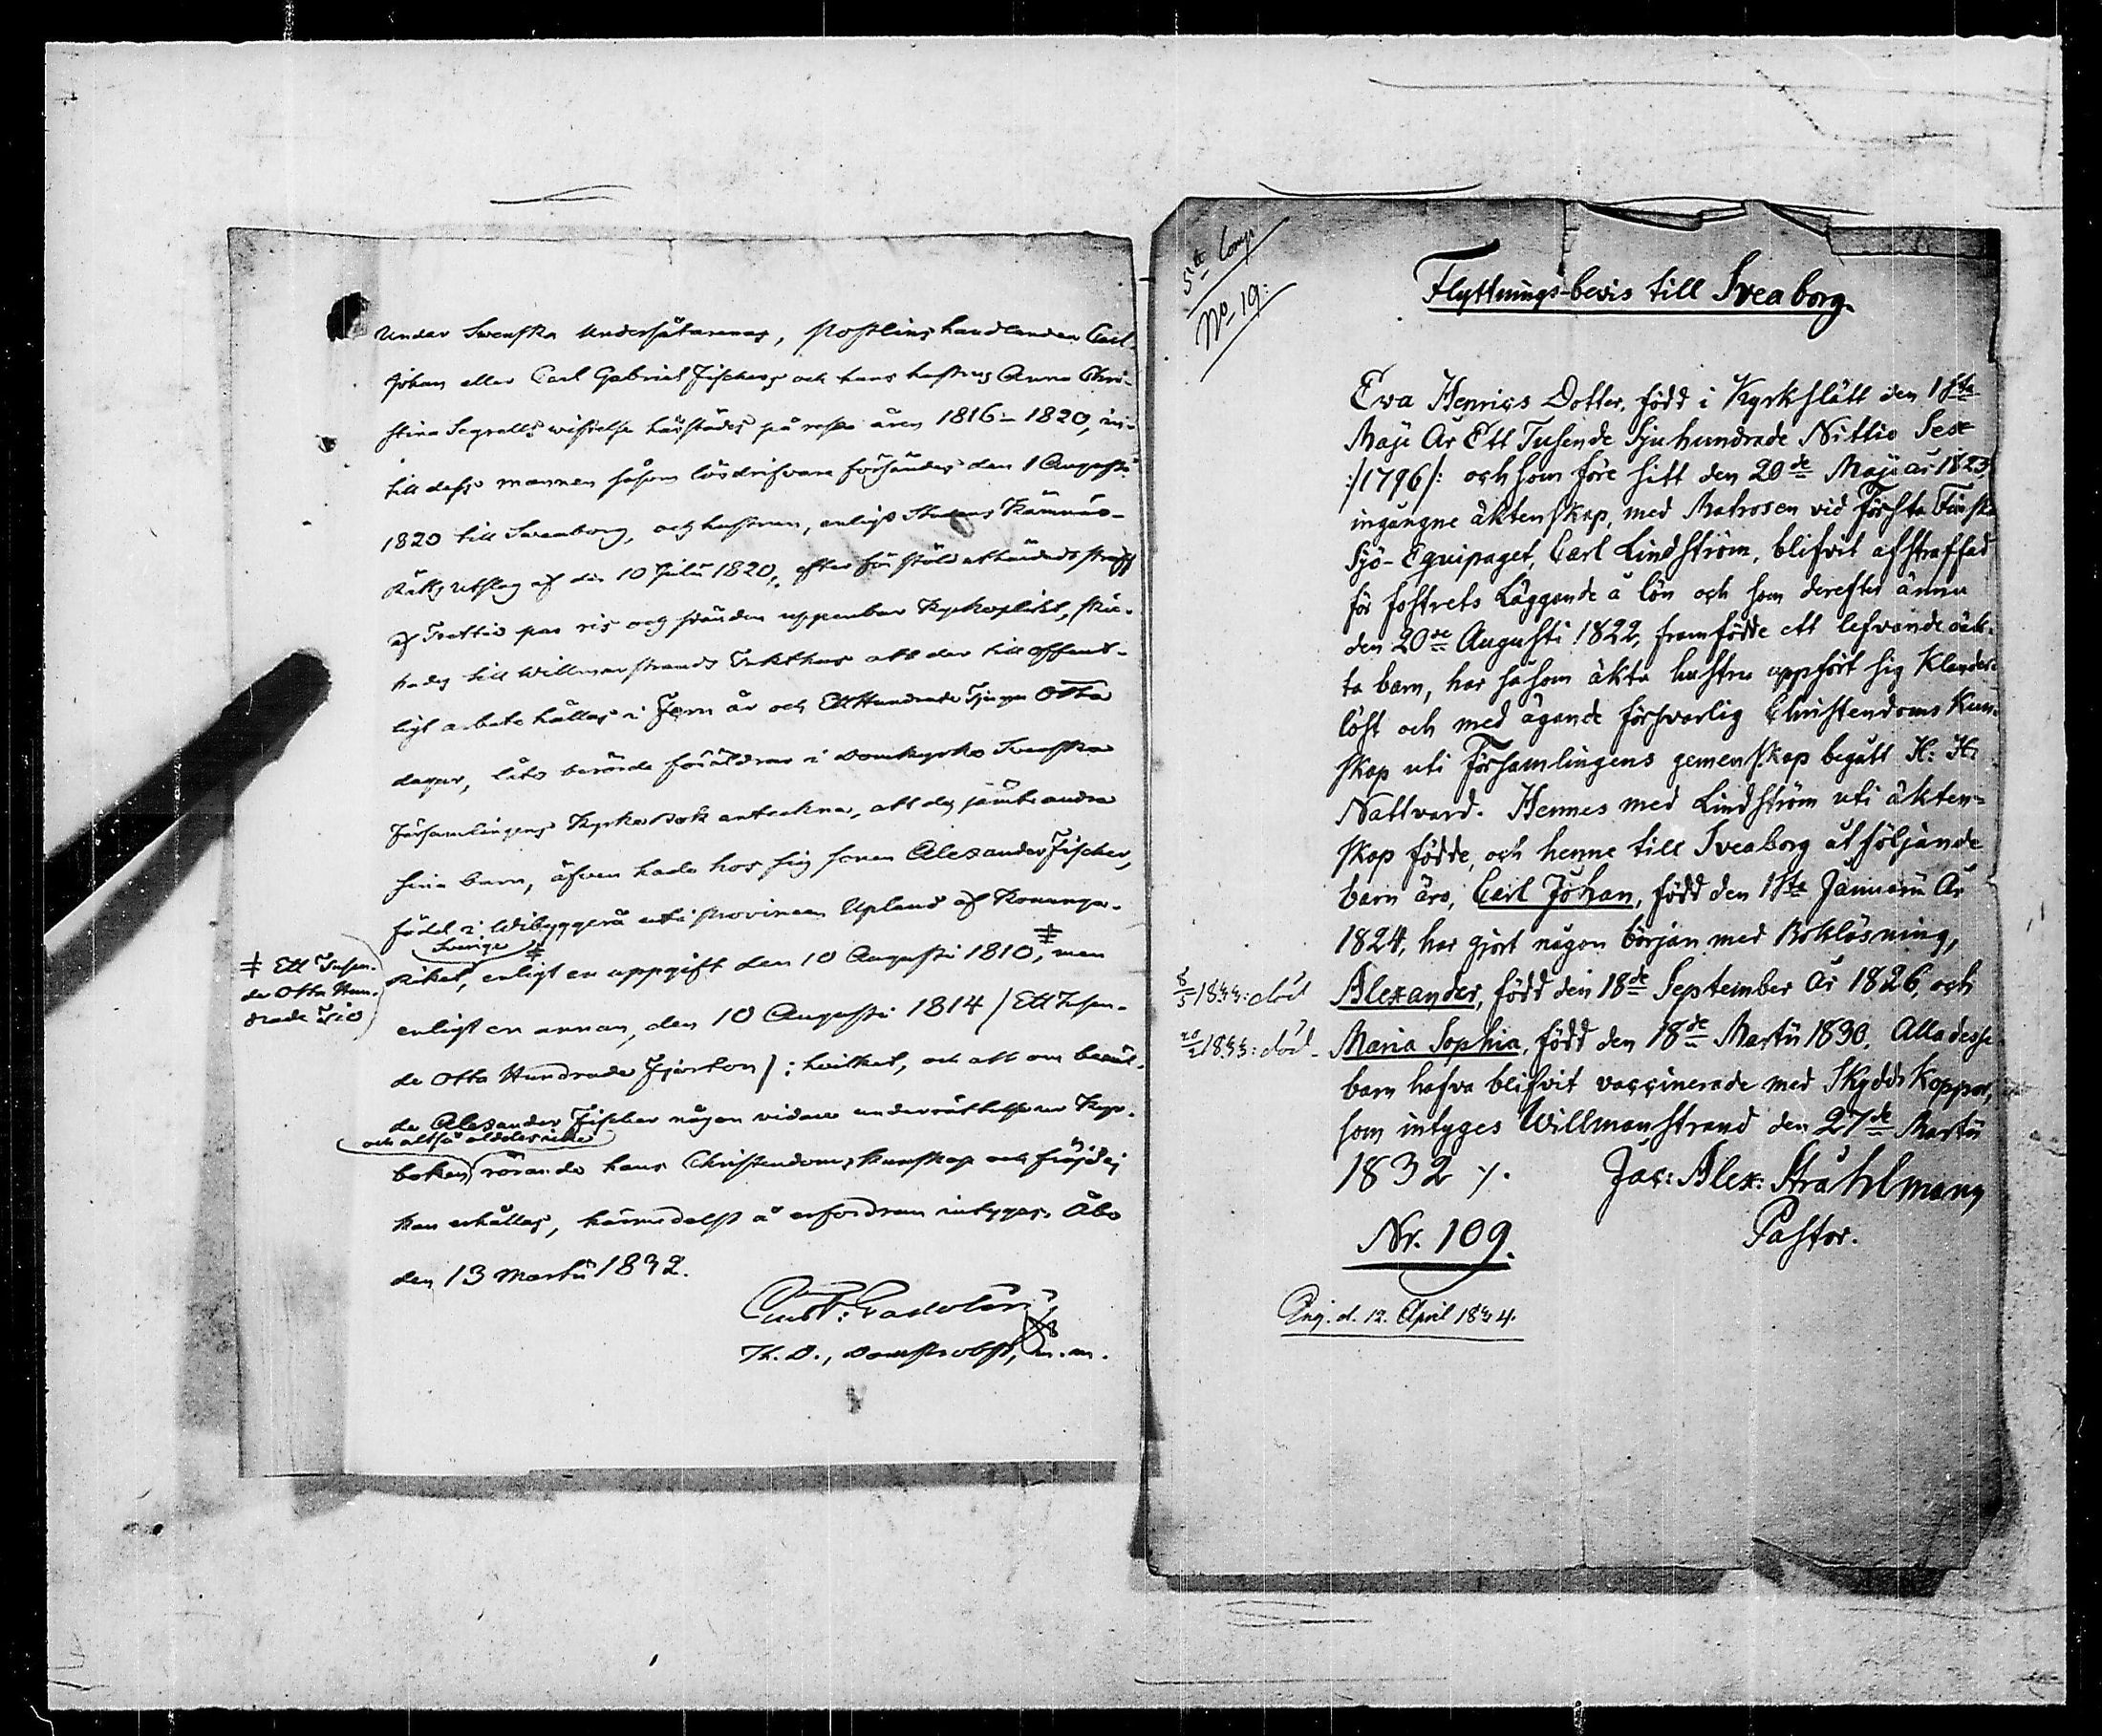 Under Swenska Undersåtarenas, Postlinshandlanden Carl
Johan eller Carl Gabriel Fischers och hans hustrus Anna Chri-
stina Segrells wistelse härstädes på resa åren 1816–1820, in-
till dess mannen såsom lösdrifvare försändes den 1 Augusti
1820 till Sweaborg, och hustrun, enligt Stadens Kämnärs-
Rätts utslag af den 10 Julii 1820, efter för stöld undergånget straff
af Trettio par ris och stånden uppenbar Kyrkoplikt, skic-
kades till Willmanstrands Tukthus att der till offent-
ligt arbete hållas i Fem år och Ett Hundrade Tjugu Otta
dagar, läto berörde föräldrar i Domkyrko Svenska
Församlingens Kyrko Bok anteckna, att de, jämte andra
sina barn, äfven hade hos sig sonen Alexander Fischer,
född i Wibyggerå uti Provincen Upland af Konunga-
Sverige
riket, enligt en uppgift den 10 Augusti 1810,# men
# Ett Tusen-
de Otta Hun-
drade Tio
enligt en annan, den 10 Augusti 1814 / Ett Tusen-
de Otta Hundrade Fjorton /: hvilket, och att om bemäl-
de Alexander Fischer någon vidare underrättelse ur Kyr-
och altså alldeles icke
boken rörande hans Christendoms kunskap och fräjd ej
kan erhållas, härmedelst å erfordran intygas. Åbo
den 13 Martii 1832.
Gust: Gadolin,
Th. D., Domprobst, m.m.
5te Comp
No 19:
Flyttnings-bevis till Sveaborg.
Ewa Henrics Dotter, född i Kyrkslätt den 1sta
Maji År Ett Tusende Sjuhundrade Nittio Sex
:/1796/: och som före sitt den 20de Maji år 1823
ingångne äktenskap, med Matrosen vid Första Finska
Sjö-Equipaget, Carl Lindström, blifvit afstraffad
för fostrets Läggande å lön och som derefter ännu
den 20de Augusti 1822, framfödde ett lefvande oäk-
ta barn, har såsom äkta hustru uppfört sig Klander-
löst och med ägande försvarlig Christendoms Kun-
skap uti Församlingens gemenskap begått H: H:
Nattvard. Hennes med Lindström uti äkten-
skap födde, och henne till Sveaborg åtföljande
barn äro, Carl Johan, född den 1sta Januarii År
1824, har gjort någon början med Bokläsning,
8/5 1833: död
Alexander, född den 18de September År 1826, och
20/2 1833: död
Maria Sophia, född den 18de Martii 1830. Alla desse
barn hafva blifvit vaccinerade med Skydds Koppor,
som intyges Willmanstrand den 27de Martii
1832 /.
Jac: Alex: Stråhlmann,
Pastor.
Nr. 109.
Ing. d. 12. April 1834.